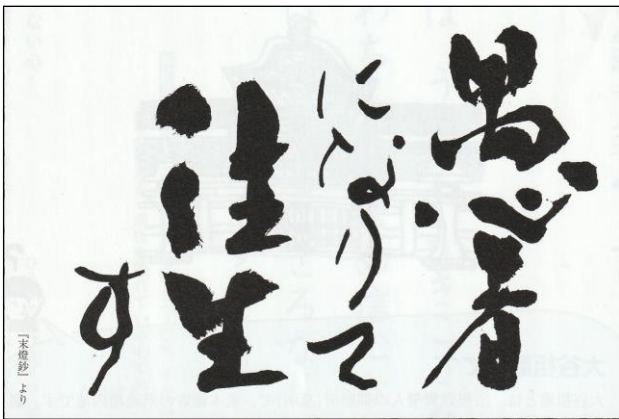 愚者
になりて
往生
す
『末燈鈔』より